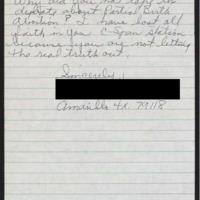 Why did you not carry the
debate about Partial Birth
Abortion? I have lost all
faith in you C-Span Station
because you are not letting
the real truth out.
Sincerely,
Amarillo Tx. 79118